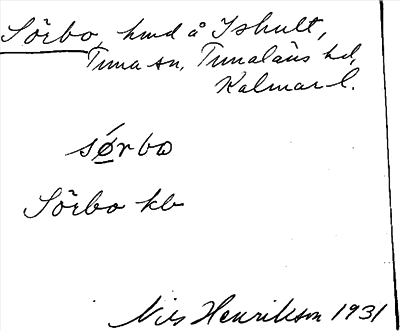 Sörbo, hmd å Ishult,
Tuna sn, Tunaläns hd,
Kalmar l.
sǿrbo
Sörbo kb
Nils Henrikson 1931